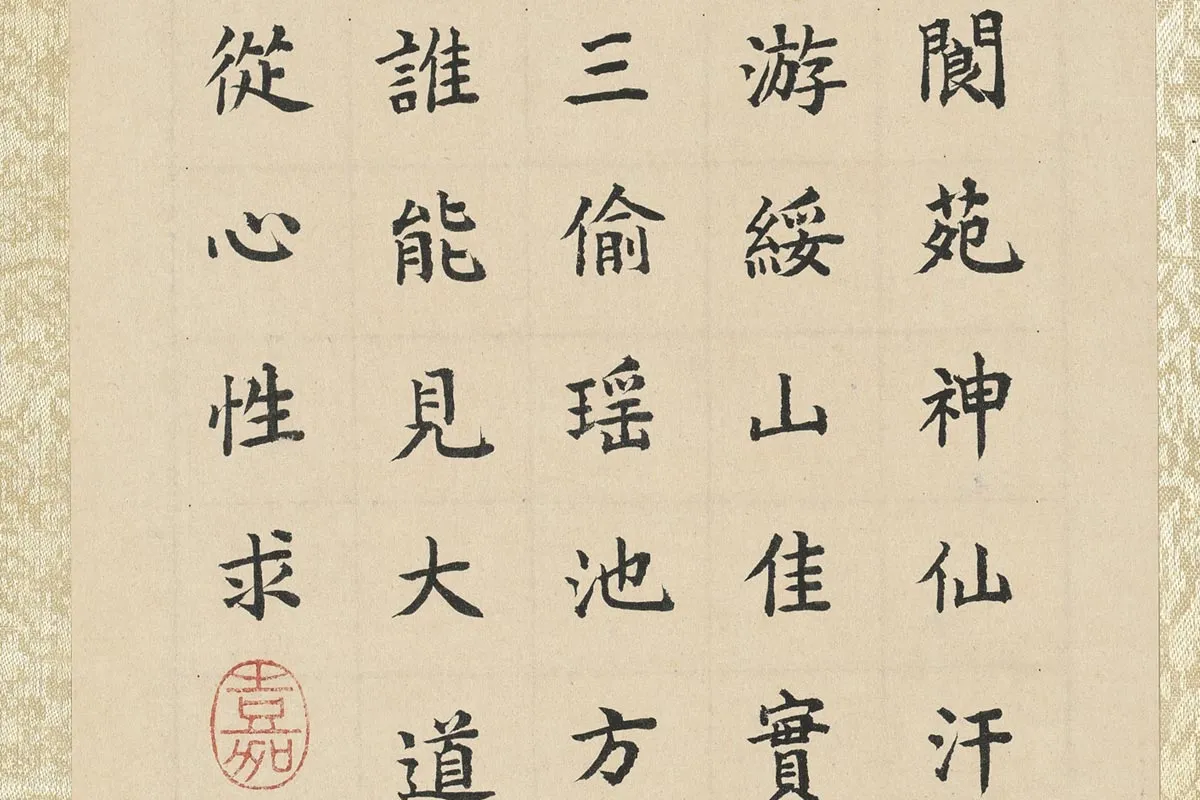 閬苑神仙汗
游綏山佳實
三偷瑶池方
誰能見大道
從心性求
嘉